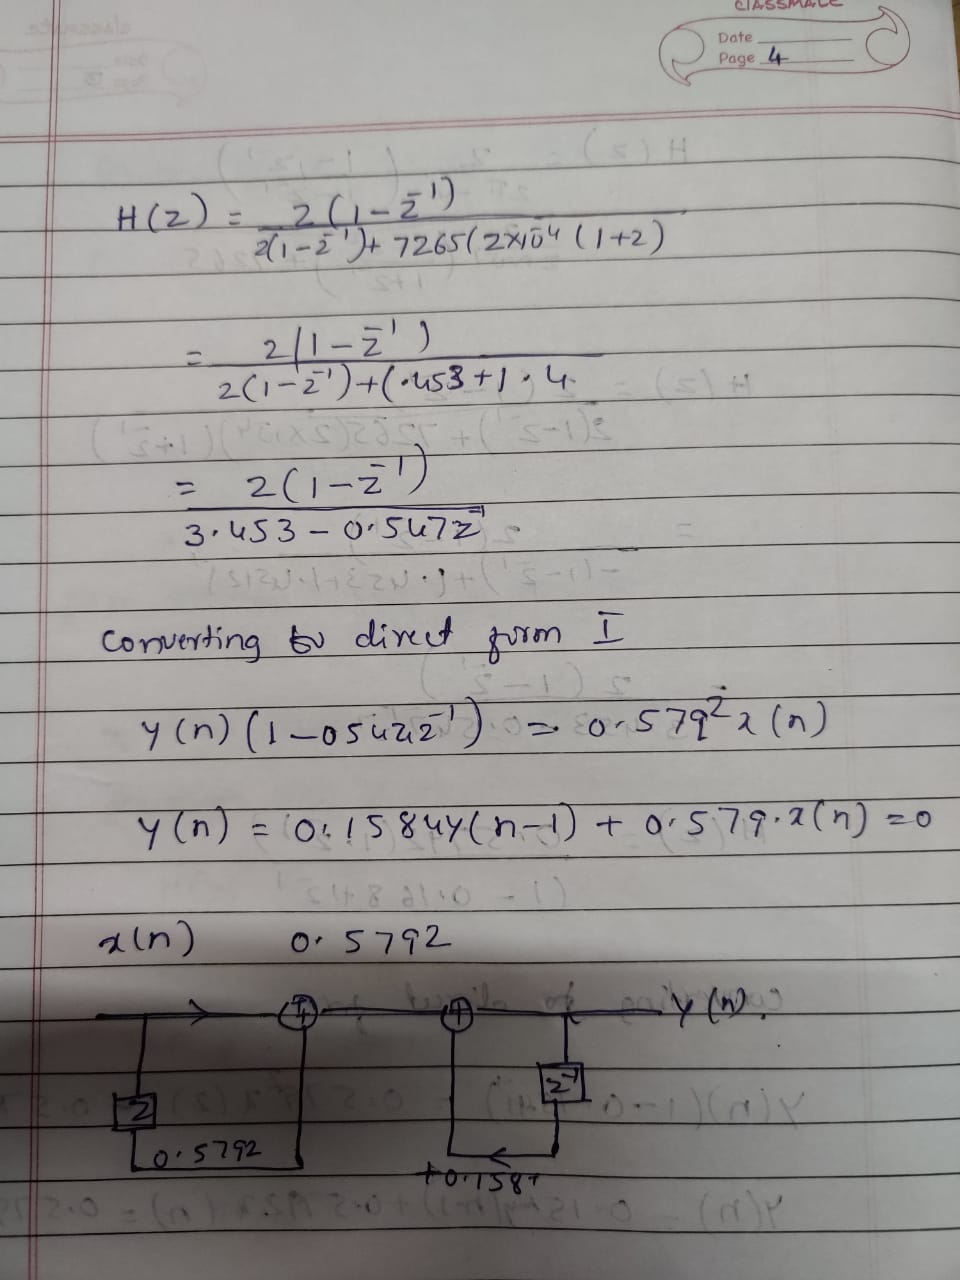 CLASSMATE
Date
Page 4
H(z) = 2(1-z⁻¹)
2(1-z⁻¹)+ 7265(2×10⁻⁴ (1+z)
= 2(1-z⁻¹)
2(1-z⁻¹)+(.453+1.4
= 2(1-z⁻¹)
3.453 - 0.547z⁻¹
Converting to direct form I
y(n) = 0.1584y(n-1) + 0.579.x(n) =0
x(n) 0.5792
+ + y(n).
z z⁻¹
0.5792
+0.158